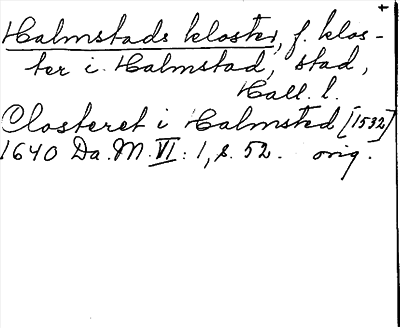 +
Halmstads kloster, f. klos-
ter i Halmstad, stad,
Hall. l.
Closteret i Halmsted [1532]
1640 Da. M. VI: 1, s. 52. orig.